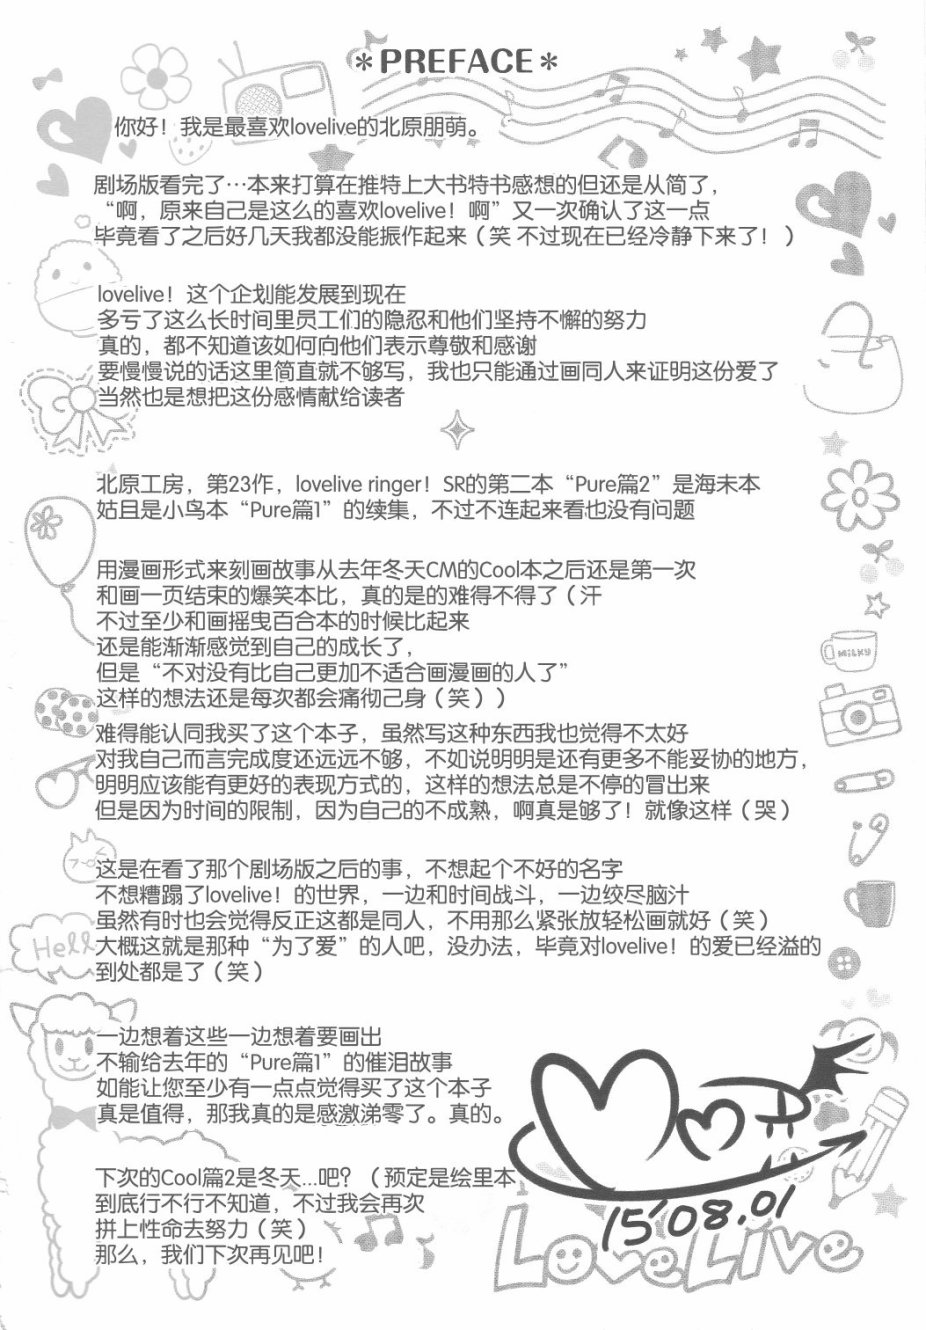 *PREFACE*
你好！我是最喜欢lovelive的北原朋萌。
剧场版看完了…本来打算在推特上大书特书感想的但还是从简了，
“啊，原来自己是这么的喜欢lovelive！啊”又一次确认了这一点
毕竟看了之后好几天我都没能振作起来（笑 不过现在已经冷静下来了！）
lovelive！这个企划能发展到现在
多亏了这么长时间里员工们的隐忍和他们坚持不懈的努力
真的，都不知道该如何向他们表示尊敬和感谢
要慢慢说的话这里简直就不够写，我也只能通过画同人来证明这份爱了
当然也是想把这份感情献给读者
北原工房，第23作，lovelive ringer！SR的第二本“Pure篇2”是海未本
姑且是小鸟本“Pure篇1”的续集，不过不连起来看也没有问题
用漫画形式来刻画故事从去年冬天CM的Cool本之后还是第一次
和画一页结束的爆笑本比，真的是的难得不得了（汗
不过至少和画摇曳百合本的时候比起来
还是能渐渐感觉到自己的成长了，
但是“不对没有比自己更加不适合画漫画的人了”
这样的想法还是每次都会痛彻己身（笑））
难得能认同我买了这个本子，虽然写这种东西我也觉得不太好
对我自己而言完成度还远远不够，不如说明明是还有更多不能妥协的地方，
明明应该能有更好的表现方式的，这样的想法总是不停的冒出来
但是因为时间的限制，因为自己的不成熟，啊真是够了！就像这样（哭）
这是在看了那个剧场版之后的事，不想起个不好的名字
不想糟蹋了lovelive！的世界，一边和时间战斗，一边绞尽脑汁
虽然有时也会觉得反正这都是同人，不用那么紧张放轻松画就好（笑）
大概这就是那种“为了爱”的人吧，没办法，毕竟对lovelive！的爱已经溢的
到处都是了（笑）
一边想着这些一边想着要画出
不输给去年的“Pure篇1”的催泪故事
如能让您至少有一点点觉得买了这个本子
真是值得，那我真的是感激涕零了。真的。
下次的Cool篇2是冬天...吧？（预定是绘里本
到底行不行不知道，不过我会再次
拼上性命去努力（笑）
那么，我们下次再见吧！
MiLKY
Hell
15'08.01
LoveLive